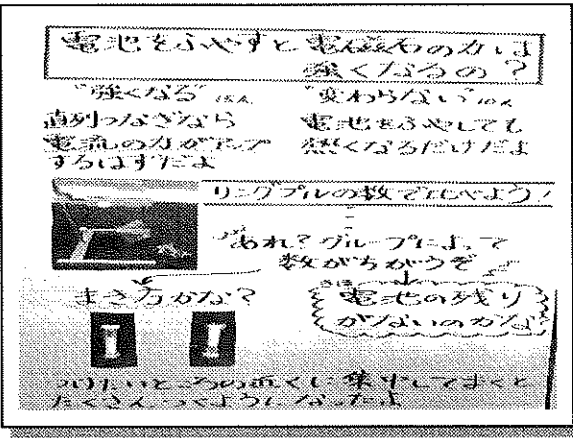 電池をふやすと電磁石の力は
強くなるの？
"強くなる"
"変わらない"
直列つなぎなら
電流の力がアップ
するはずだよ
電池をふやしても
熱くなるだけだよ
リングプルの数で比べよう！
あれ？グループによって
数がちがうぞ
まき方かな？
電池の残り
がないのかな
つけたいところの近くに集中してまくと
たくさんつくようになったよ